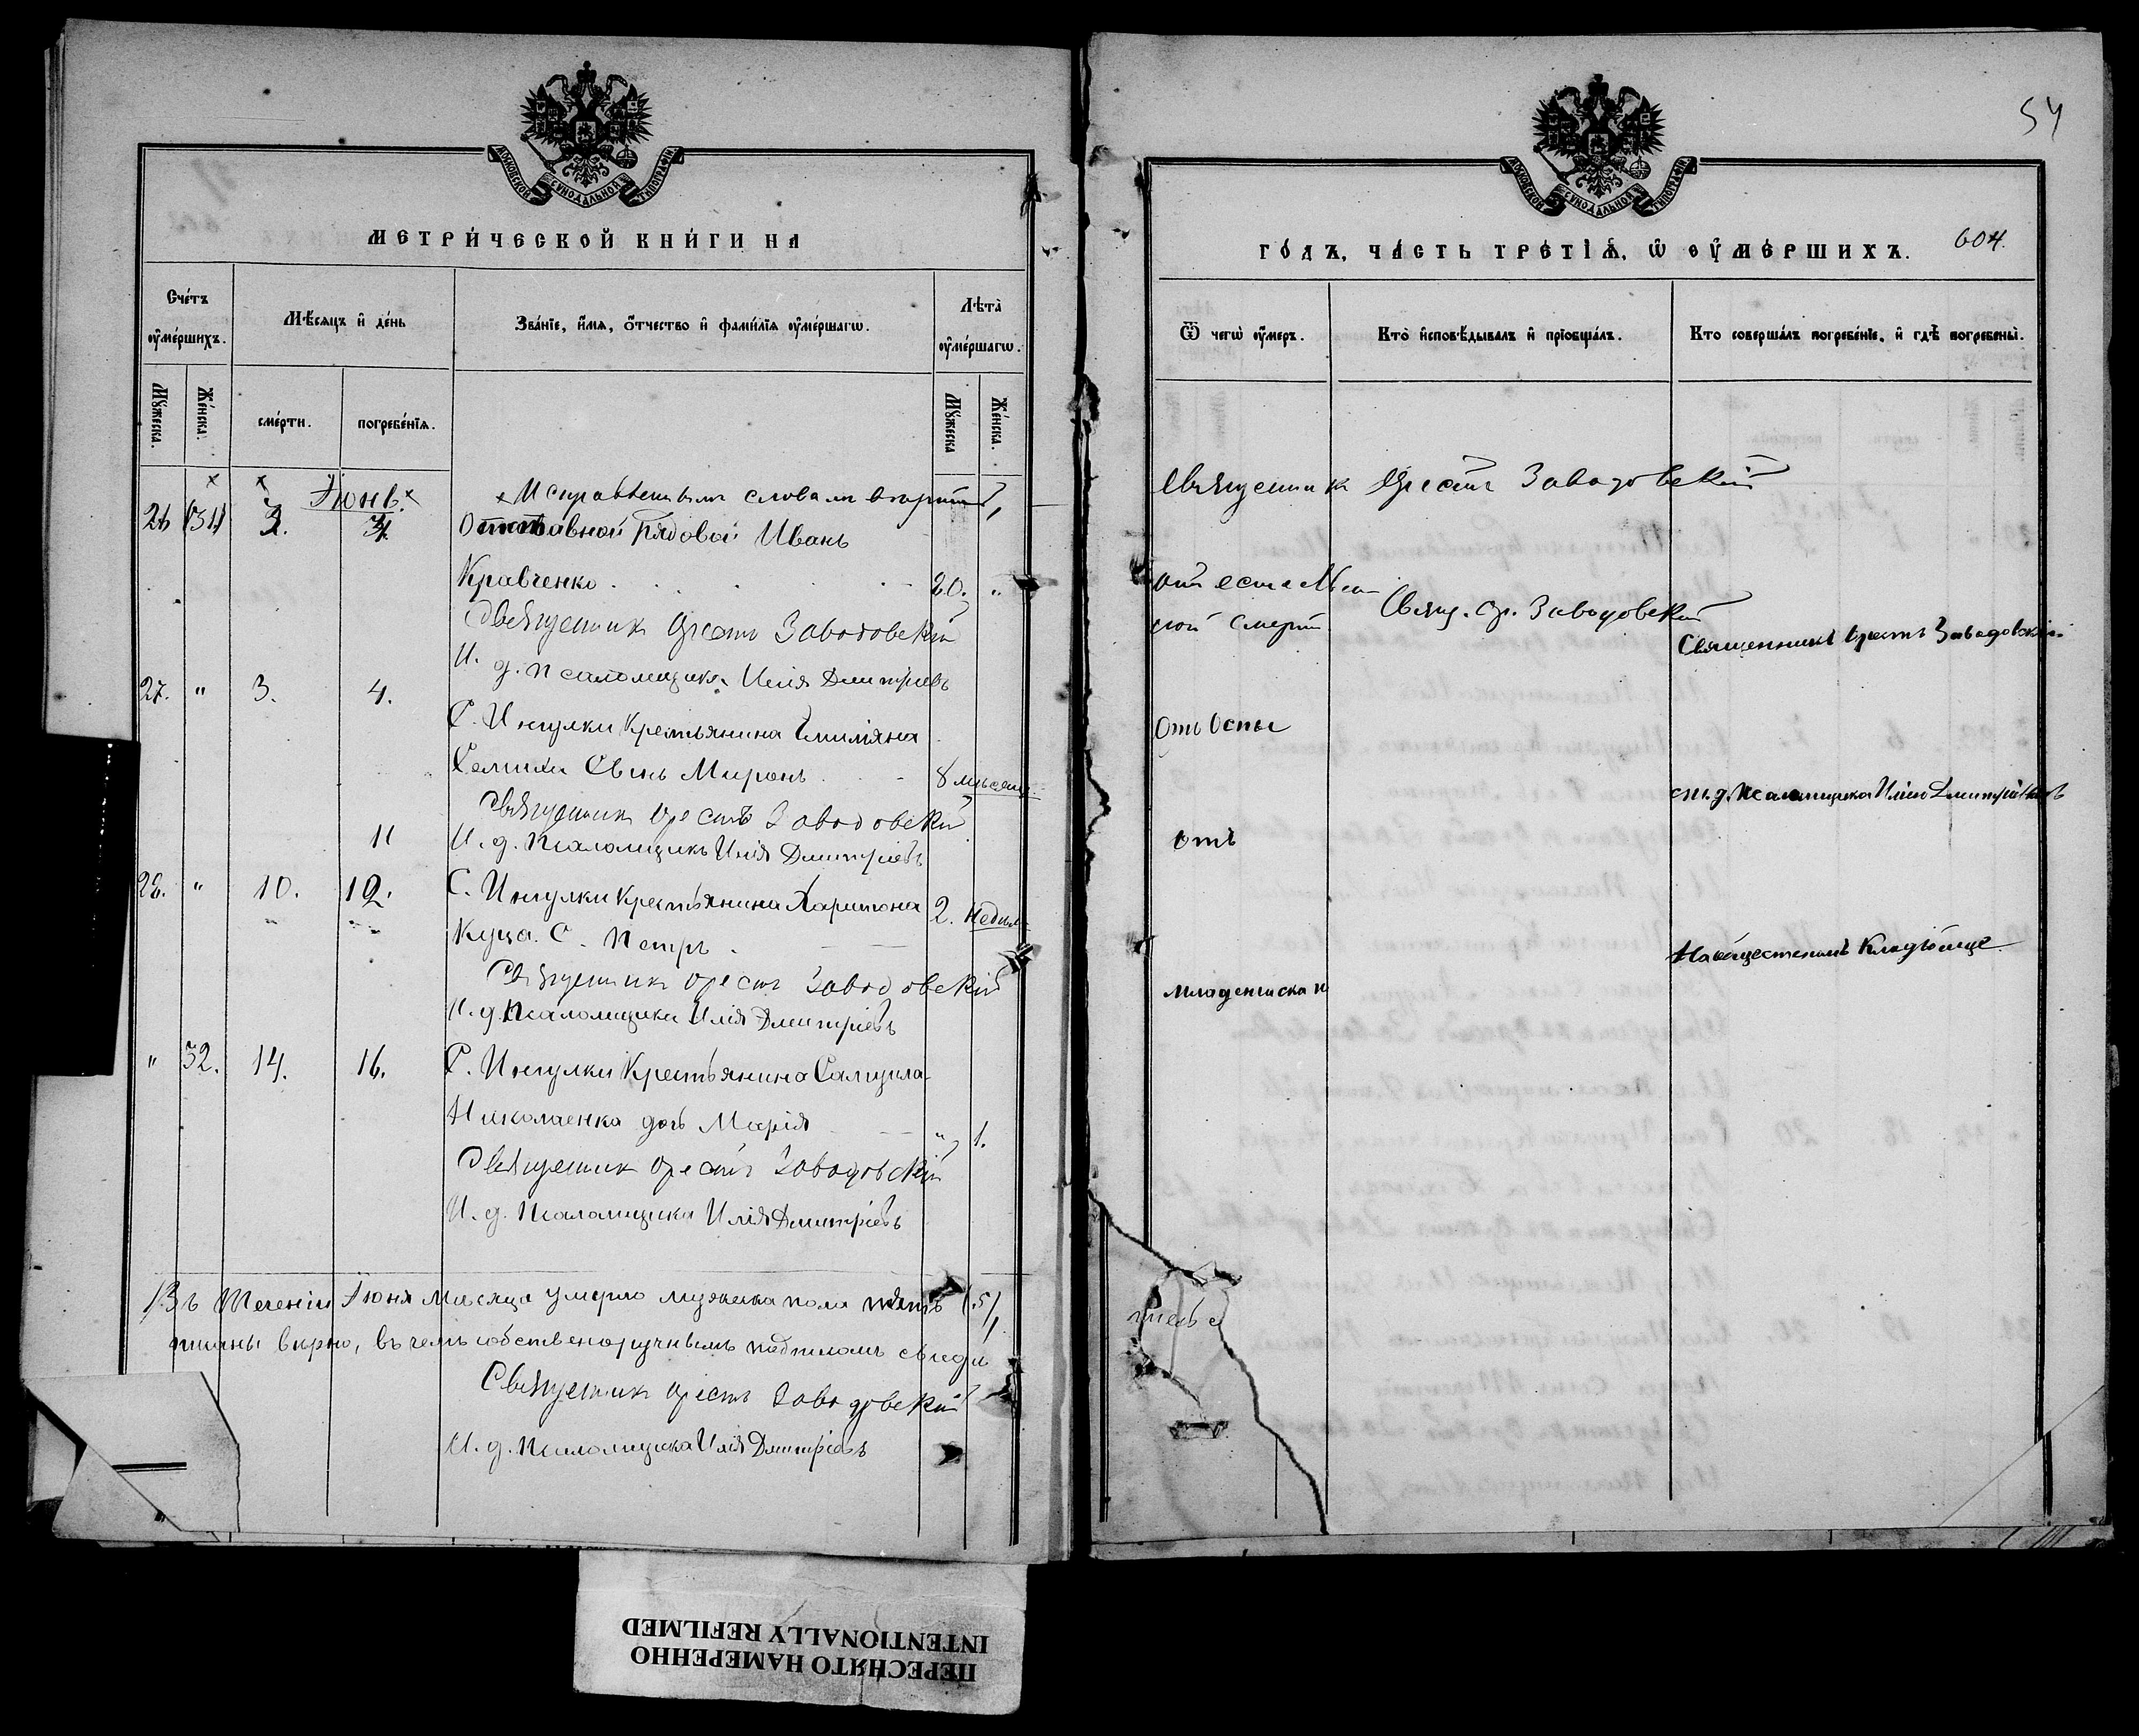 МОСКОВСКОЙ СѴНОДАЛЬНОЙ ТИПОГРАФІИ
МЕТРИЧЕСКОЙ КНИГИ НА
Счетъ оумершихъ.
Мѣсяцъ и день
Званіе, имя, отчество и фамилія оумершагѡ.
Лѣта оумершагѡ.
Мужеска.
Женска.
смерти.
погребенія.
Мужеска
Женска.
Іюнь.
26 (31) 3. 3.
Исправленнымъ словамъ вѣрить
Отставной Рядовой Иванъ
Кравченко 20. "
Священникъ Орестъ Заводовскій
И. д. псаломщика Илія Дмитріевъ
27. " 3. 4.
С. Ингулки Крестьянина Емиліяна
Сынъ Миронъ 8 мѣсяц.
Священникъ Орестъ Заводовскій
И. д. Псаломщика Илія Дмитріевъ
11
28. " 10. 12.
С. Ингулки Крестьянина Харитона
Куца. С. Петръ 2. Недѣл.
Священникъ Орестъ Заводовскій
И. д. Псаломщика Илія Дмитріевъ
" 32. 14. 16.
С. Ингулки Крестьянина Самуила
Николаенка дочь Марія " 1.
Священникъ Орестъ Заводовскій
И. д. Псаломщика Илія Дмитріевъ
Въ теченіи Іюня мѣсяца умерло мужеска пола пять (5)
писаны вѣрно, въ чемъ собственоручнымъ подписомъ свидѣ
Священникъ Орестъ Заводовскій
И. д. Псаломщика Илія Дмитріевъ
54
МОСКОВСКОЙ СѴНОДАЛЬНОЙ ТИПОГРАФІИ
ГОДЪ, ЧАСТЬ ТРЕТІЯ, Ѡ ОУМЕРШИХЪ.
604.
Ѿ чегѡ оумеръ.
Кто исповѣдывалъ и пріобщалъ.
Кто совершалъ погребеніе, и гдѣ погребены.
Священникъ Орестъ Заводовскій
отъ естествен
ной смерти
Свящ. Ор. Заводовскій
Священникъ Орестъ Заводовскій
Отъ Оспы
съ и. д. Псаломщика Иліею Дмитріевымъ
отъ
На общественомъ Кладбище
младенческа
тельс
ПЕРЕСНЯТО НАМЕРЕННО
INTENTIONALLY REFILMED